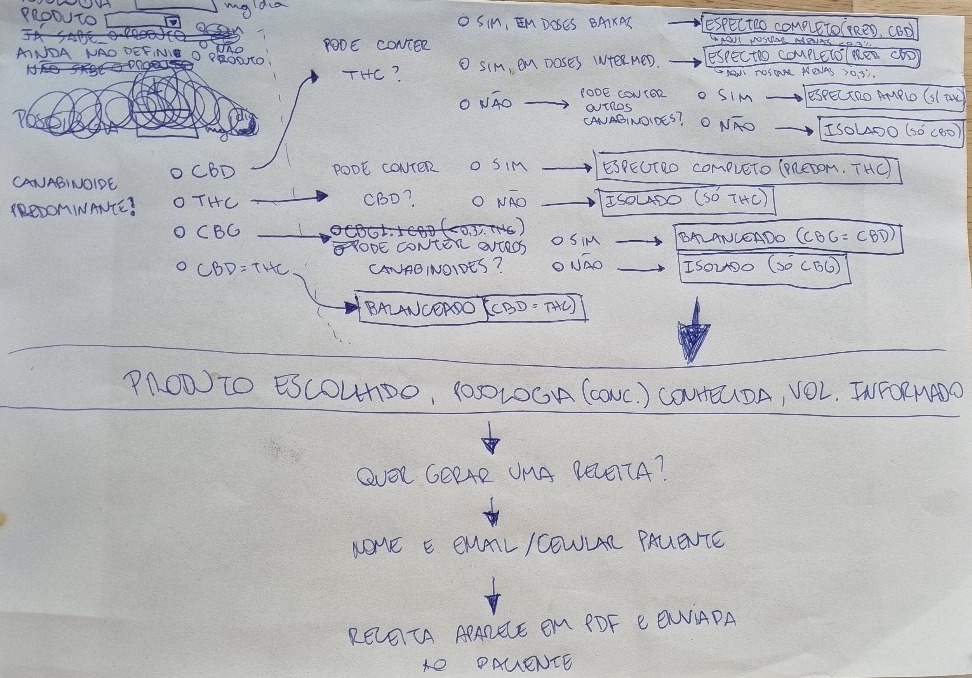 mg/dia
PRODUTO
JÁ SABE O PRODUTO
AINDA NÃO DEFINI O PRODUTO
O NÃO
NÃO SABE O PRODUTO
mg/dia
CANABINOIDE
PREDOMINANTE?
O CBD
O THC
O CBG
O CBD=THC
PODE CONTER
THC?
O SIM, EM DOSES BAIXAS
ESPECTRO COMPLETO (PRED. CBD)
↳ AQUI MOSTRAR APENAS <0,3%.
O SIM, EM DOSES INTERMED.
ESPECTRO COMPLETO (PRED. CBD)
↳ AQUI MOSTRAR APENAS >0,3%.
O NÃO
PODE CONTER
OUTROS
CANABINOIDES?
O SIM
ESPECTRO AMPLO (S/ THC)
O NÃO
ISOLADO (SÓ CBD)
PODE CONTER
CBD?
O SIM
ESPECTRO COMPLETO (PREDOM. THC)
O NÃO
ISOLADO (SÓ THC)
O CBG 1:1 CBD (<0,3% THC)
PODE CONTER OUTROS
CANABINOIDES?
O SIM
BALANCEADO (CBG = CBD)
O NÃO
ISOLADO (SÓ CBG)
BALANCEADO (CBD = THC)
PRODUTO ESCOLHIDO, POSOLOGIA (CONC.) CONHECIDA, VOL. INFORMADO
QUER GERAR UMA RECEITA?
NOME E EMAIL/CELULAR PACIENTE
RECEITA APARECE EM PDF E ENVIADA
AO PACIENTE